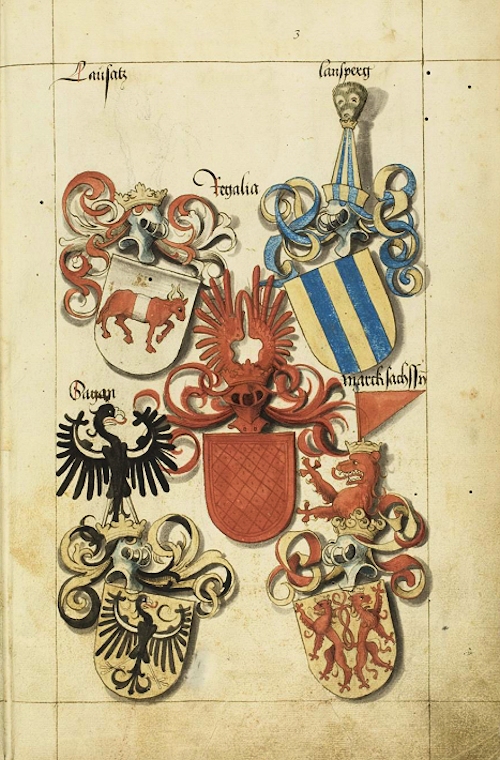 3
Lausatz
lansperg
Regalia
marcksachssn